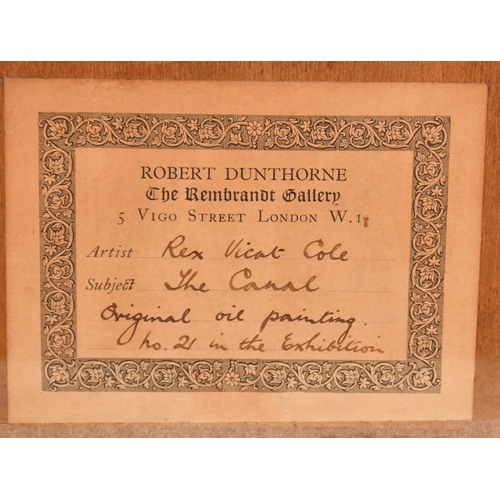 ROBERT DUNTHORNE
The Rembrandt Gallery
5 VIGO STREET LONDON W.1.
Artist Rex Vicat Cole
Subject The Canal
Original oil painting.
no. 21 in the Exhibition